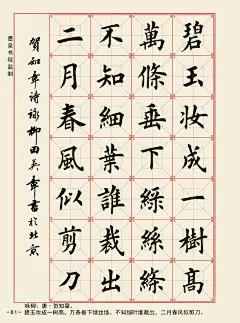 碧玉妝成一樹高
萬條垂下綠絲絛
不知細葉誰裁出
二月春風似剪刀
賀知章詩詠柳田英章書於北京
墨泉书院监制
咏柳：唐·贺知章。
-81- 碧玉妆成一树高，万条垂下绿丝绦。不知细叶谁裁出，二月春风似剪刀。